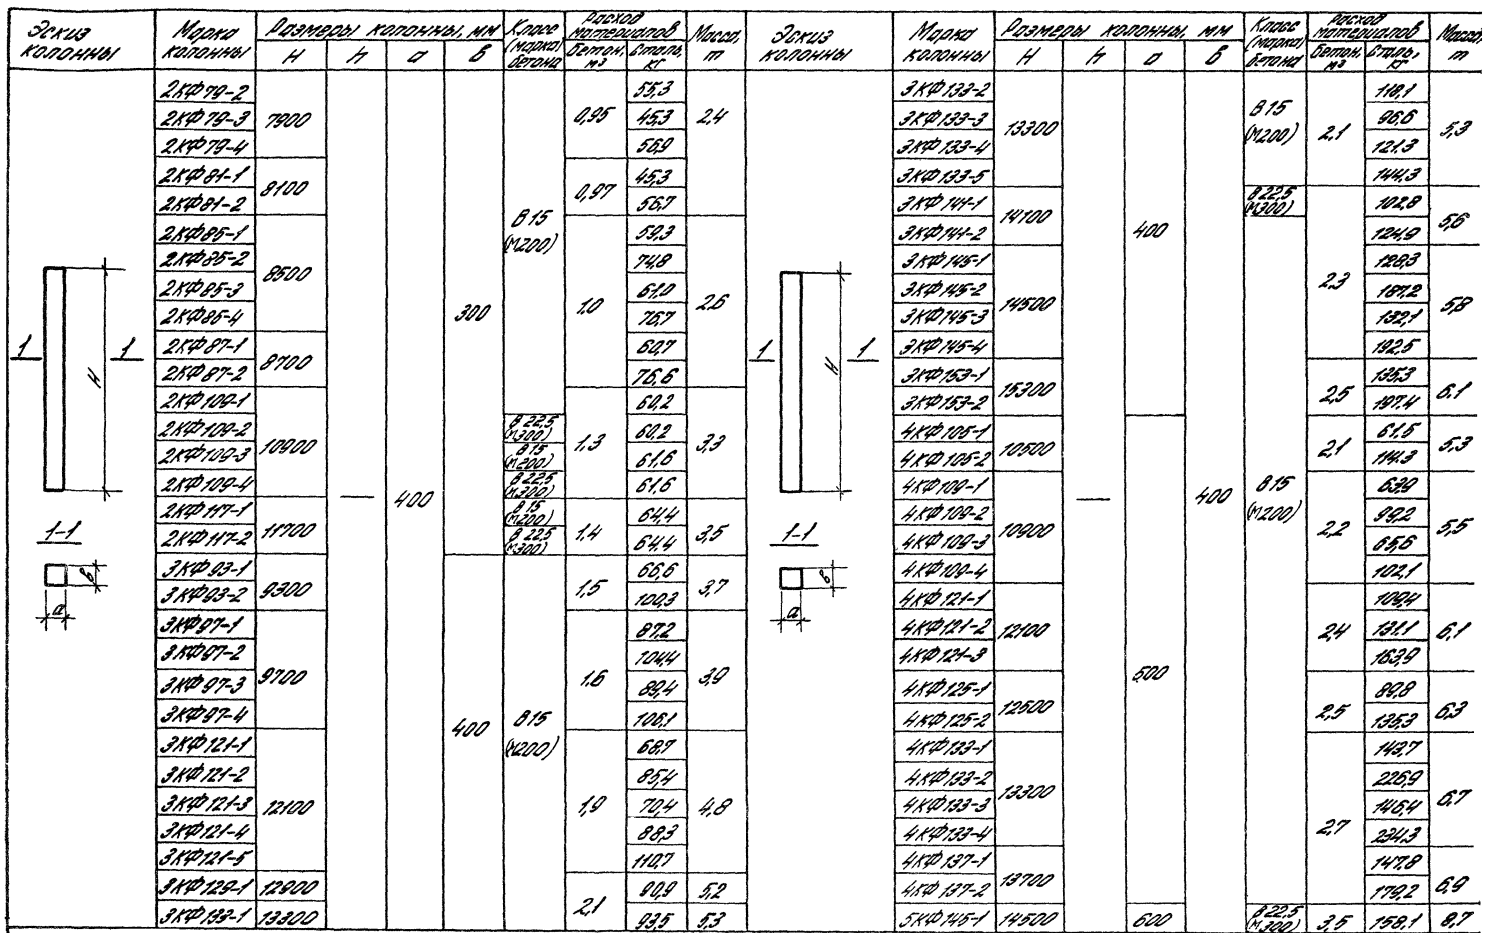 Эскиз колонны | Марка колонны | Размеры колонны, мм | Класс (марка) бетона | Расход материалов | Масса, т | Эскиз колонны | Марка колонны | Размеры колонны, мм | Класс (марка) бетона | Расход материалов | Масса, т
H | h | a | в | Бетон, м³ | Сталь, кг | H | h | a | в | Бетон, м³ | Сталь, кг
1 1
H
1-1
в
a
2КФ79-2 | 7900 | — | 400 | 300 | В15 (М200) | 0,95 | 55,3 | 2,4
2КФ79-3 | 45,3
2КФ79-4 | 56,9
2КФ81-1 | 8100 | 0,97 | 45,3
2КФ81-2 | 56,7
2КФ85-1 | 8500 | 1,0 | 59,3 | 2,6
2КФ85-2 | 74,8
2КФ85-3 | 61,0
2КФ85-4 | 76,7
2КФ87-1 | 8700 | 60,7
2КФ87-2 | 76,6
2КФ109-1 | 10900 | 1,3 | 60,2 | 3,3
2КФ109-2 | В22,5 (М300) | 60,2
2КФ109-3 | В15 (М200) | 61,6
2КФ109-4 | В22,5 (М300) | 61,6
2КФ117-1 | 11700 | В15 (М200) | 1,4 | 64,4 | 3,5
2КФ117-2 | В22,5 (М300) | 64,4
3КФ93-1 | 9300 | 400 | В15 (М200) | 1,5 | 66,6 | 3,7
3КФ93-2 | 100,3
3КФ97-1 | 9700 | 1,6 | 87,2 | 3,9
3КФ97-2 | 104,4
3КФ97-3 | 89,4
3КФ97-4 | 106,1
3КФ121-1 | 12100 | 1,9 | 68,7 | 4,8
3КФ121-2 | 85,4
3КФ121-3 | 70,4
3КФ121-4 | 88,3
3КФ121-5 | 110,7
3КФ129-1 | 12900 | 2,1 | 90,9 | 5,2
3КФ133-1 | 13300 | 93,5 | 5,3
1 1
H
1-1
в
a
3КФ133-2 | 13300 | — | 400 | 400 | В15 (М200) | 2,1 | 118,1 | 5,3
3КФ133-3 | 96,6
3КФ133-4 | 121,3
3КФ133-5 | 144,3
3КФ141-1 | 14100 | В22,5 (М300) | 2,3 | 102,8 | 5,6
3КФ141-2 | В15 (М200) | 124,9
3КФ145-1 | 14500 | 128,3 | 5,8
3КФ145-2 | 187,2
3КФ145-3 | 132,1
3КФ145-4 | 192,5
3КФ153-1 | 15300 | 2,5 | 135,3 | 6,1
3КФ153-2 | 197,4
4КФ105-1 | 10500 | 500 | 2,1 | 61,5 | 5,3
4КФ105-2 | 114,3
4КФ109-1 | 10900 | 2,2 | 63,9 | 5,5
4КФ109-2 | 99,2
4КФ109-3 | 65,6
4КФ109-4 | 102,1
4КФ121-1 | 12100 | 2,4 | 109,4 | 6,1
4КФ121-2 | 131,1
4КФ121-3 | 163,9
4КФ125-1 | 12500 | 2,5 | 89,8 | 6,3
4КФ125-2 | 135,3
4КФ133-1 | 13300 | 2,7 | 143,7 | 6,7
4КФ133-2 | 226,9
4КФ133-3 | 146,4
4КФ133-4 | 234,3
4КФ137-1 | 13700 | 147,8 | 6,9
4КФ137-2 | 179,2
5КФ145-1 | 14500 | 600 | В22,5 (М300) | 3,5 | 158,1 | 8,7